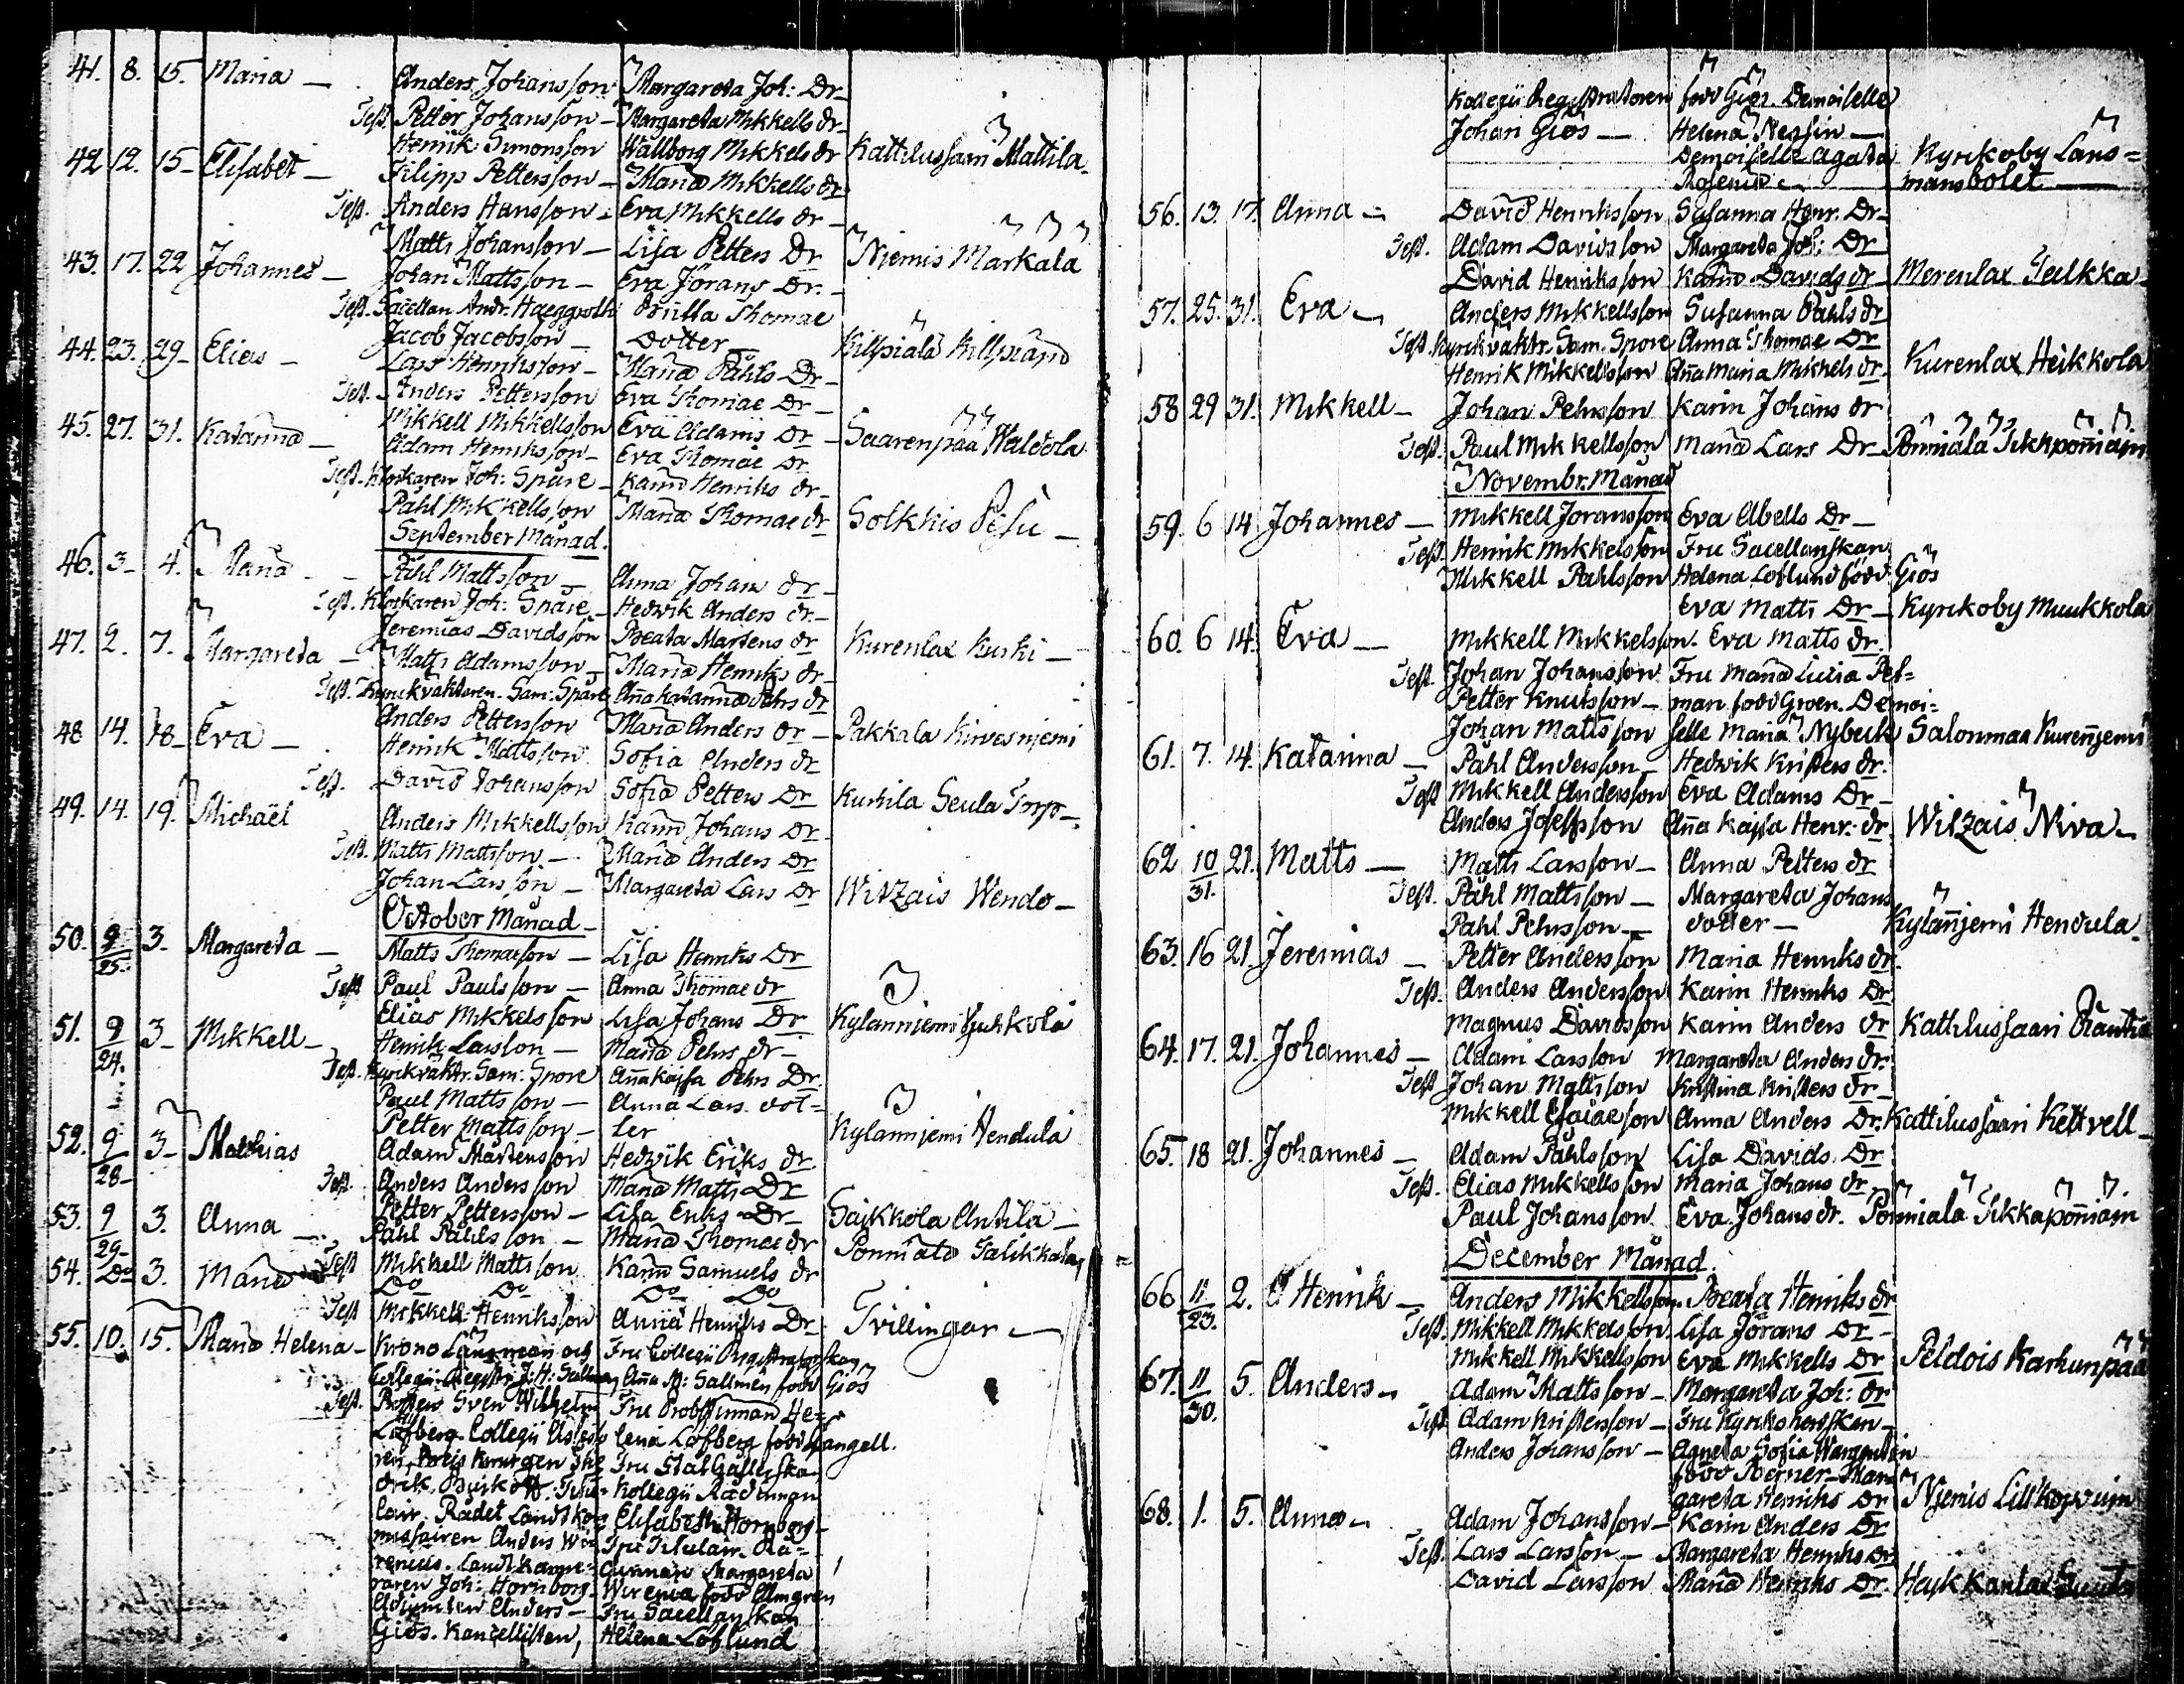 41. 8. 15. Maria — Anders Johansson Margareta Joh: Dr
Test. Petter Johansson — Margareta Mikkells dr
Henrik Simonsson Wallborg Mikkels dr Kattilussari Mattila
42 12. 15 — Elisabet — Filipp Pettersson — Maria Mikkells dr
Test. Anders Hansson — Eva Mikkells dr —
Matts Johansson — Lisa Petters Dr Niemis Markala
43. 17. 22 Johannes — Johan Mattsson — Eva Jörans Dr. —
Test. Sacellan Andr. Haeggroth Britta Thomae
Jacob Jacobsson — Dotter — Killpiälä Killpiänd
44. 23. 29 — Elias — Lars Henriksson — Maria Påhls Dr —
Test. Anders Pettersson Eva Thomae Dr —
Mikkell Mikkellsson Eva Adams Dr — Saarenpää Waldola
45. 27. 31. Katarina — Adam Henriksson — Eva Thomae Dr
Test. Klockaren Joh: Spåre — Karin Henriks dr —
Påhl Mikkellsson Maria Thomae dr Solkkis Pesu —
September Månad.
46. 3 — 4. Maria — Påhl Mattsson — Anna Johans dr —
Test. Klockaren Joh: Spåre — Hedwik Anders dr. —
Jeremias Davidsson Beata Martens dr Kurenlax Kuski —
47. 2. 7. Margareta — Matts Adamsson — Maria Henriks dr —
Test. Kyrckväktaren Sam: Spåre Aña Katarina Pehrs dr
Anders Pettersson Maria Anders dr — Pakkala Kirvesniemi
48 14. 18 — Eva — Henrik Mattsson Sofia Anders dr
Test. David Johansson Sofia Petters Dr Kurkila Seula Torp —
49. 14. 19. Michaël Anders Mikkellsson Karin Johans Dr —
Test. Matts Mattsson — Maria Anders Dr
Johan Larsson — Margareta Lars Dr Witzais Wendo —
October Månad —
50. 9/25. 3 — Margareta — Matts Thomaeson — Lisa Henriks Dr
Test Paul Paulsson — Anna Thomae dr
Elias Mikkelsson Lisa Johans Dr Kylänniemi
51. 9/24. 3 — Mikkell — Henrik Larsson — Maria Pehrs dr —
Test. Kyrckväktr. Sam: Spore Aña Kajsa Pehrs Dr
Paul Mattsson — Anna Lars dot=
Petter Mattsson — ter Kylänniemi Hendula
52. 9/28 — 3 — Mathias Adam Mårtensson Hedwik Eriks dr
Test. Anders Andersson Maria Matts Dr
Petter Pettersson — Lisa Eriks Dr — Saikkola Antila —
53. 9/29 — 3. Anna — Påhl Påhlsson — Maria Thomae dr
Test Mikkell Mattsson Karin Samuels dr
54. Do 3. Maria Do Do Do Do
Test Mikkell Henriksson Anna Henriks Dr Tvillingar —
55. 10. 15. Maria Helena — Krono Länsman och Fru Collegii Registratorskan
Collegii Registr. J: H: Sallmen Aña M: Sallmén född Giös
Test. Sven Wilhelm Fru Probstinnan He=
Löfberg. Collegii lena Löfberg född Fangell.
Fru
Kollegii Rådinnan
Rådet Landtkom Elisabeth Hornborg
missairen Anders Wi Fru Titulair Rå=
renius. Landtkamre= dinnan Margareta
raren Joh: Hornborg Wirenia född Almgren
Adjuncten Anders — Fru Sacellanskan
Giös. Kancellisten, Helena Löflund
Kollegii Registratoren född Giös. Demoiselle
Johan Giös — Helena Neglin —
Demoiselle Agata Kyrckoby Läns=
mansbolet —
56. 13. 17. Anna — David Henriksson Susanna Henr. Dr —
Test. Adam Davidsson Margareta Joh: Dr
David Henriksson Karin Davids dr Merenlax Tulkka —
57. 25. 31. Eva — Anders Mikkellsson Susanna Påhls dr
Test. Kyrckväktr. Sam. Spore Anna Thomae Dr
Henrik Mikkellsson Aña Maria Mikkels dr Kurenlax Heikkola
58 29 31. Mikkell — Johan Pehrsson Karin Johans dr
Test. Paul Mikkellsson Maria Lars Dr —
Novembr. Månad
59. 6 14 Johannes — Mikkell Joransson Eva Abells Dr —
Test. Henrik Mikkelsson Fru Sacellanskan
Mikkell Påhlsson Helena Löflund född Giös
Eva Matts Dr — Kyrckoby Muukkola
60. 6 14. Eva — Mikkell Mikkelsson. Eva Matts dr.
Test. Johan Johansson Fru Maria Lucia Pet=
Petter Knutsson — man född Groen. Demoi=
Johan Mattsson selle Maria Nybeck Salonmaa Kurenniemi
61. 7. 14. Katarina — Påhl Andersson — Hedwik Kristers dr.
Test Mikkell Andersson Eva Adams Dr —
Anders Josepsson Aña Kajsa Henr: dr. Witzais Niva —
62 10/31. 21. Matts — Matts Larsson — Anna Petters dr
Test. Påhl Mattsson — Margareta Johans
Påhl Pehrsson — dotter — Kylänniemi Hendula.
63. 16 21. Jeremias — Petter Andersson Maria Henriks dr.
Test. Anders Andersson Karin Henriks Dr
Magnus Davidsson Karin Anders dr Kattilussaari
64. 17. 21. Johannes — Adam Larsson Margareta Anders dr.
Test Johan Mattsson Kristina Kristers dr —
Mikkell Esaiaeson Anna Anders Dr. Kattilussaari Kettvell —
65. 18 21. Johannes — Adam Påhlsson Lisa Davids Dr
Test. Elias Mikkellsson Maria Johans dr
Paul Johansson Eva Johans dr.
December Månad.
66 11/23. 2. Henrik — Anders Mikkellsson. Beata Henriks dr
Test. Mikkell Mikkelsson Lisa Jörans Dr —
Mikkell Mikkellsson Eva Mikkells Dr Peldois Karhunpää
67. 11/30. 5. Anders — Adam Mattsson — Margareta Joh: dr
Test Adam Kristersson — Fru Kyrkoherdskan —
Anders Johansson — Agneta Sofia Wargentin
född Berner — Mar=
gareta Henriks Dr Niemis
68. 1. 5. Anna — Adam Johansson — Karin Anders Dr
Test. Lars Larsson — Margareta Henriks Dr
David Larsson Maria Henriks Dr.